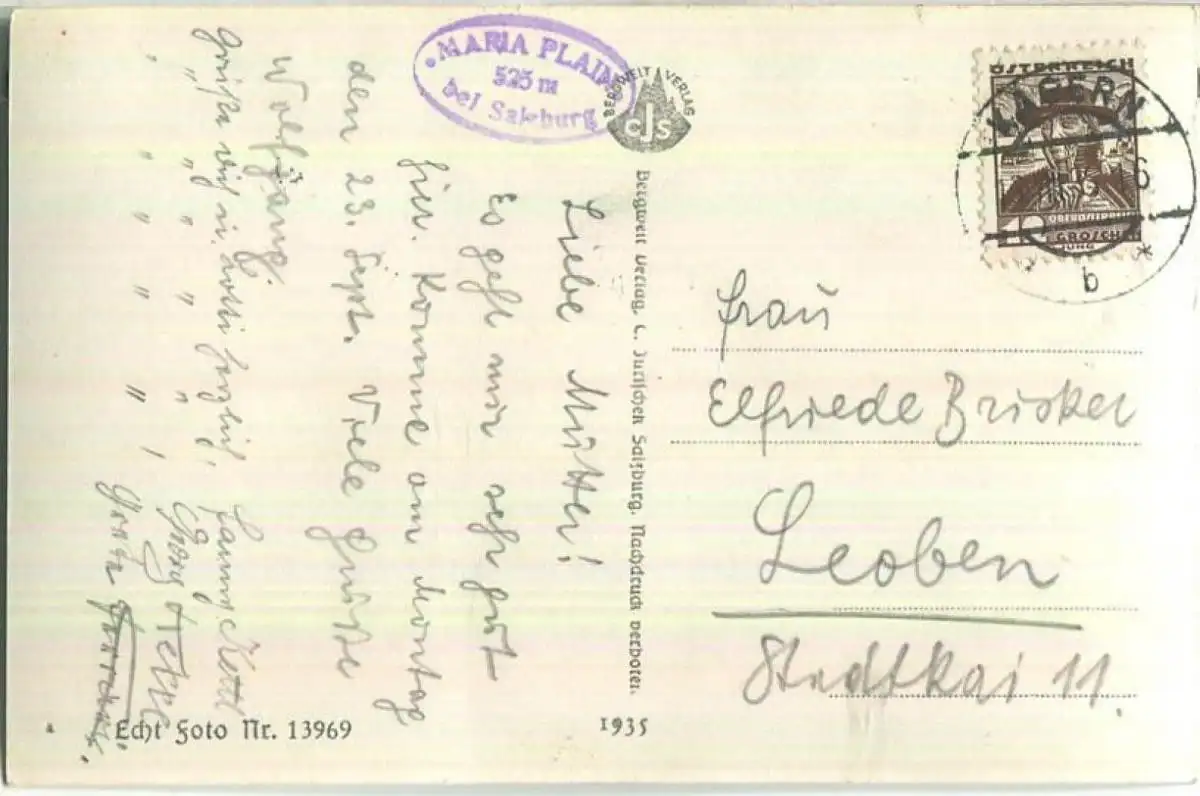 MARIA PLAIN
525 m
bei Salzburg
BERGWELT VERLAG
cJs
ÖSTERREICH
12
GROSCHEN
b *
Liebe Mutter!
Es geht mir sehr gut
hier. Komme am Montag
den 23. Sept. Viele Grüße
Wolfgang.
Grüße dich u. Lotti herzlich,
" " " " "
Georg
" " " " "
Bergwelt Verlag, C. Jurischek Salzburg. Nachdruck verboten.
Frau
Elfriede
Leoben
Stadtkai 11.
Echt Foto Nr. 13969
1935